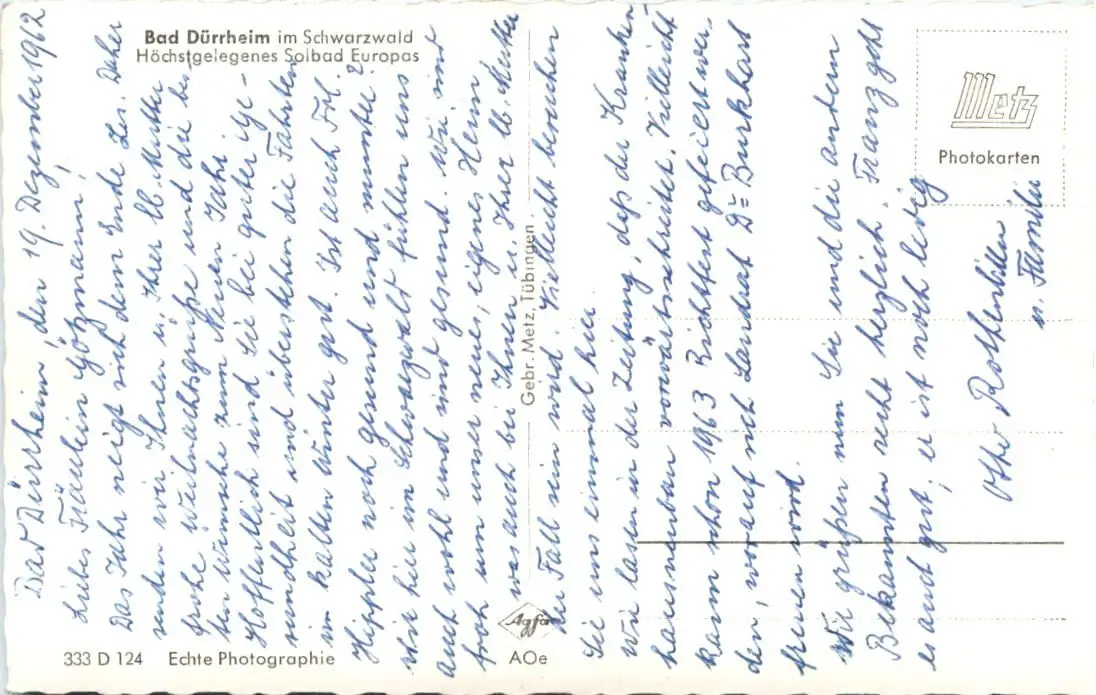 Bad Dürrheim im Schwarzwald
Höchstgelegenes Solbad Europas
Bad Dürrheim, den 19. Dezember 1962
Liebes Fräulein Götzmann,
Das Jahr neigt sich dem Ende zu. Daher
senden wir Ihnen u. Ihrer lb. Mutter
frohe Weihnachtsgrüße und die be-
sten Wünsche zum Neuen Jahr.
Hoffentlich sind Sie bei guter Ge-
sundheit und überstehen die Fahrten
im kalten Winter gut. Ist auch Frl.
Hippler noch gesund und munter?
Wir hier im Schwarzwalt fühlen uns
auch wohl und sind gesund. Wir sind
froh um unser neues, eigenes Heim,
was auch bei Ihnen u. Ihrer lb. Mutter
der Fall sein wird. Vielleicht besuchen
Sie uns einmal hier.
Wir lasen in der Zeitung, daß der Kranken-
hausneubau vorwärtsschreitet. Vielleicht
kann schon 1963 Richtfest gefeiert wer-
den, worauf sich Landrat Dr. Burkhart
freuen wird.
Wir grüßen nun Sie und die andern
Bekannten recht herzlich. Franz geht
es auch gut; er ist noch ledig
Otto Rothenhäller
u. Familie
Metz
Photokarten
Gebr. Metz, Tübingen
333 D 124 Echte Photographie
Agfa
AOe